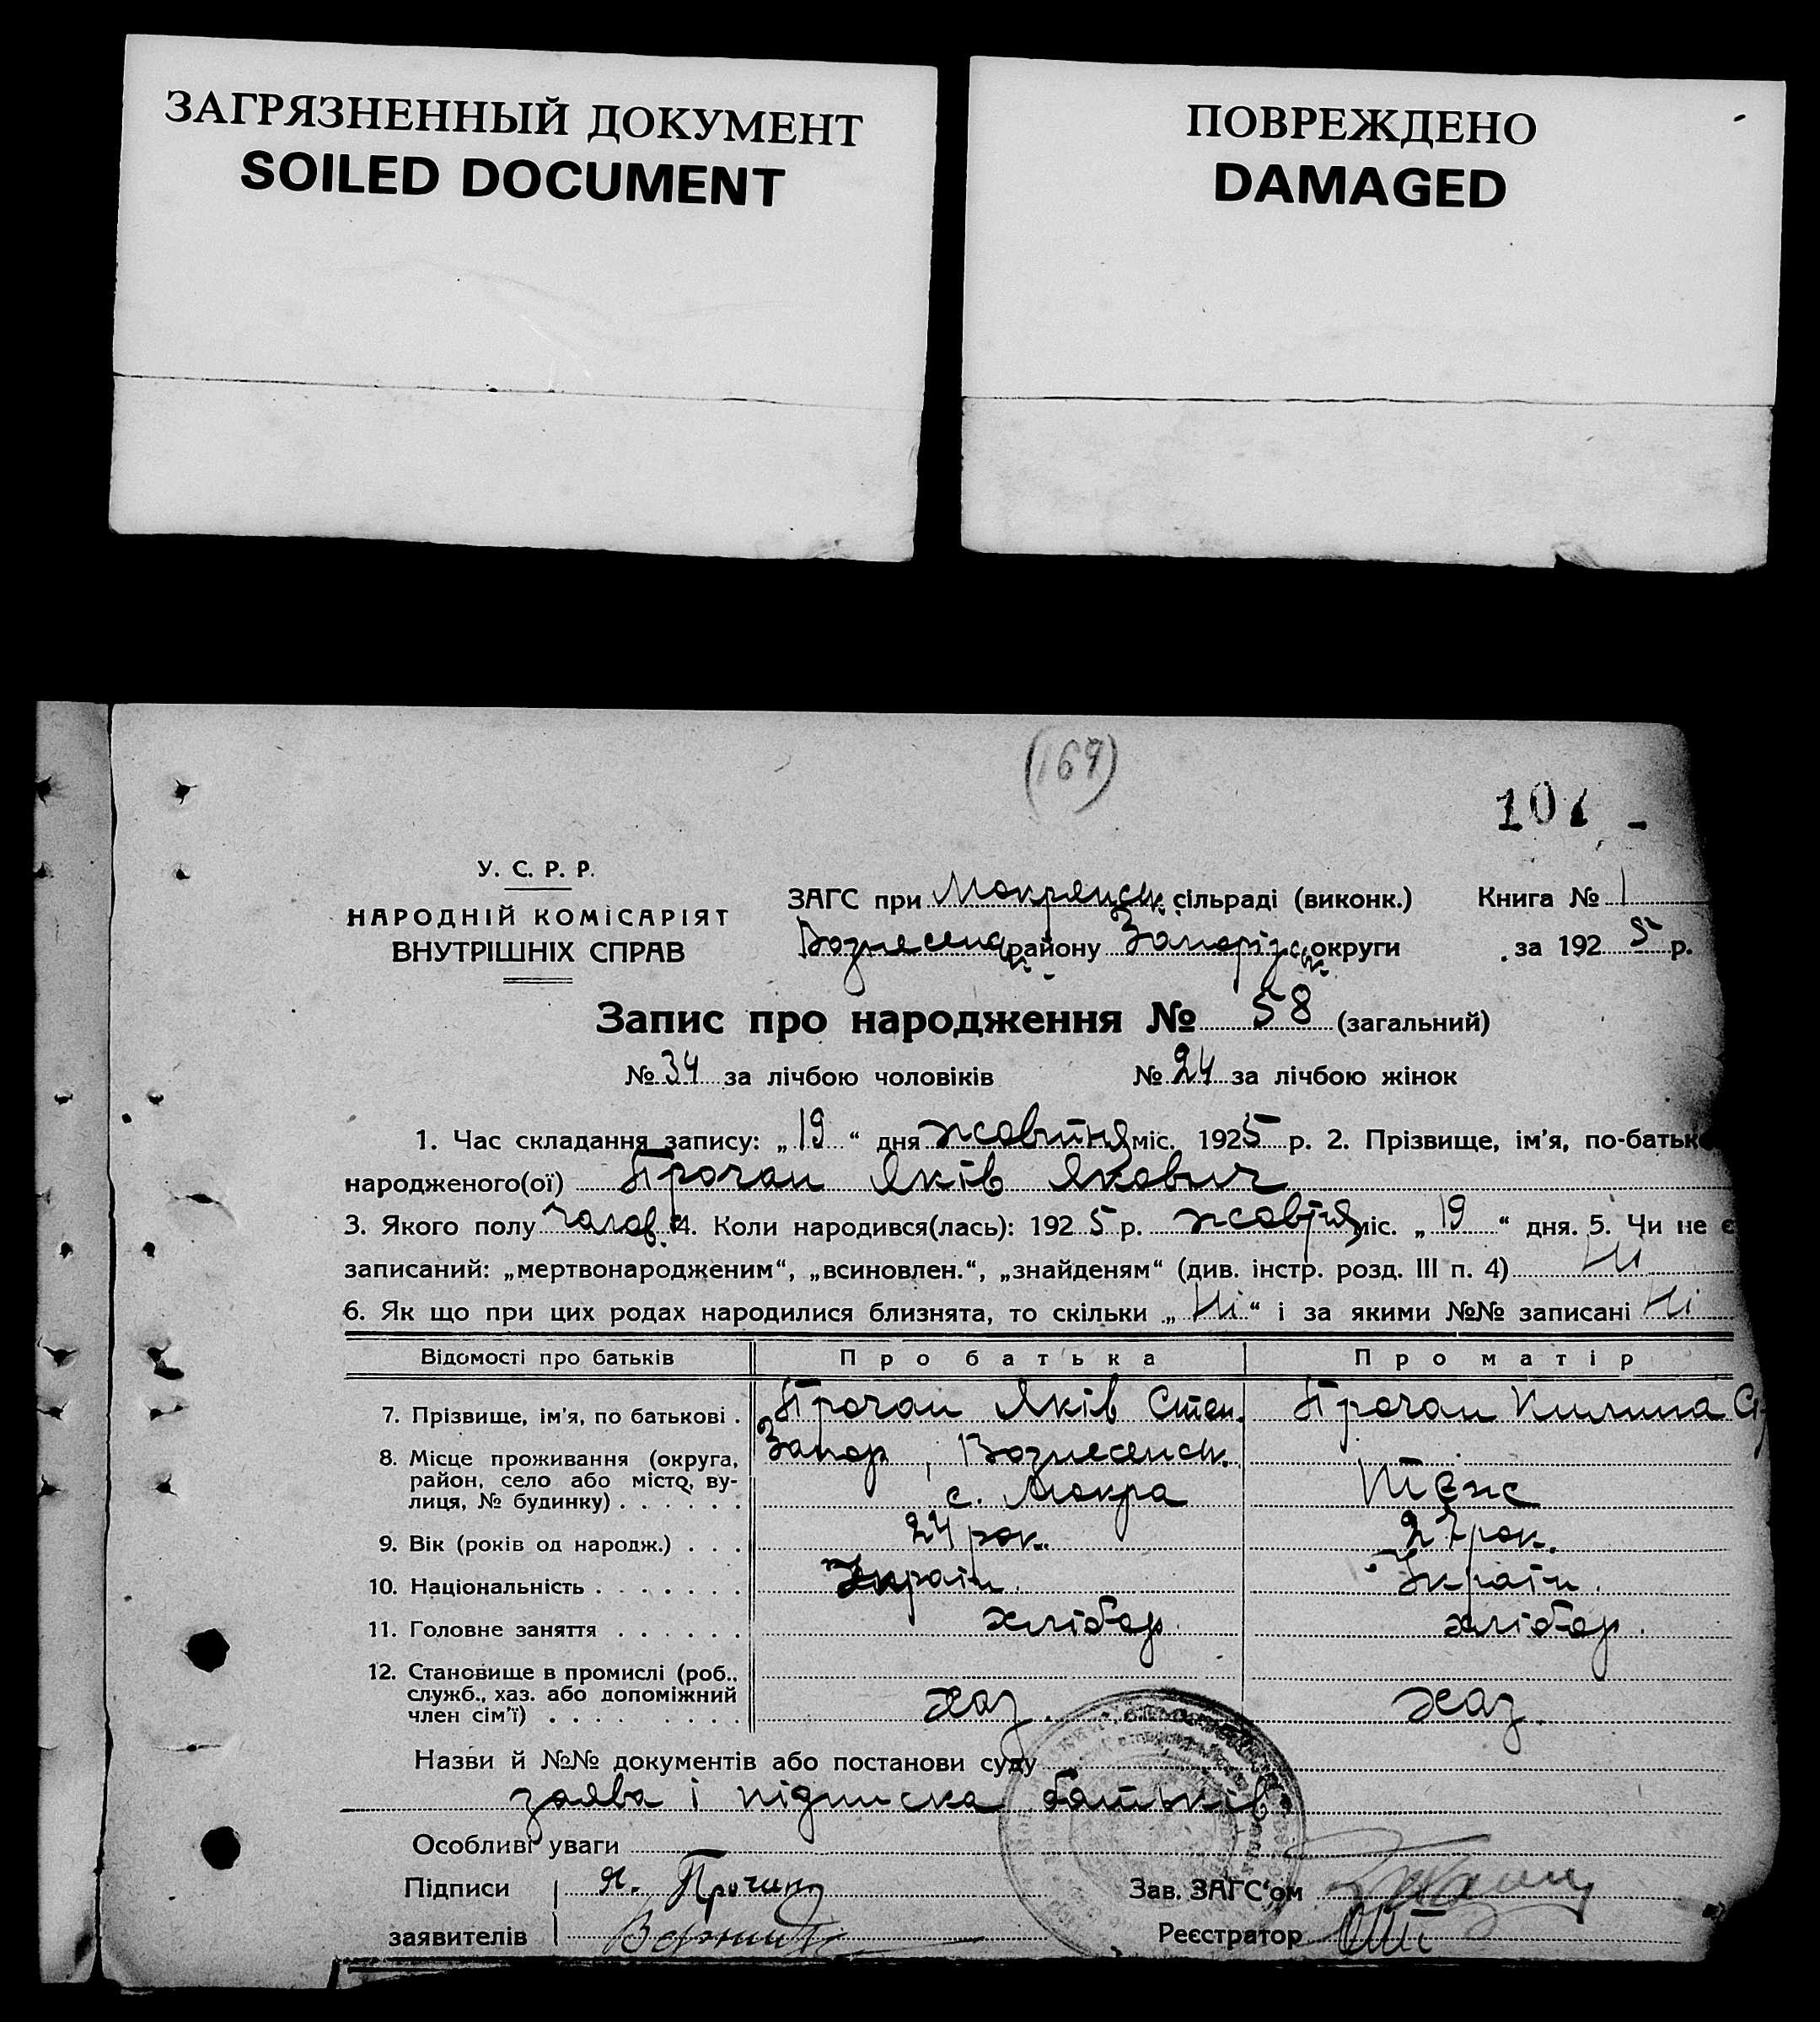 ЗАГРЯЗНЕННЫЙ ДОКУМЕНТ
SOILED DOCUMENT
ПОВРЕЖДЕНО
DAMAGED
(169)
107
У. С. Р. Р.
НАРОДНІЙ КОМІСАРІЯТ
ВНУТРІШНІХ СПРАВ
ЗАГС при Мокрянськ. сільраді (виконк.) Книга № 1
Вознесенськ. району Запорізськ. округи за 1925 р.
Запис про народження № 58 (загальний)
№ 34 за лічбою чоловіків № 24 за лічбою жінок
1. Час складання запису: „19“ дня жовтня міс. 1925 р. 2. Прізвище, ім’я, по-батьк
народженого(ої) Прочан Яків Якович
3. Якого полу чолов. 4. Коли народився(лась): 1925 р. жовтня міс. „19“ дня. 5. Чи не є
записаний: „мертвонародженим“, „всиновлен.“, „знайденям“ (див. інстр. розд. III п. 4) Ні
6. Як що при цих родах народилися близнята, то скільки „Ні“ і за якими №№ записані Ні
Відомості про батьків Про батька Про матір
7. Прізвище, ім’я, по батькові . Прочан Яків Степ. Прочан Килина
8. Місце проживання (округа, Запор., Вознесенськ.
район, село або місто, ву-
лиця, № будинку) . . . . . . с. Мокра Теж
9. Вік (років од народж.) . . . 24 рок. 27 рок.
10. Національність . . . . . . . Україн. Україн.
11. Головне заняття . . . . . . хлібор. хлібор.
12. Становище в промислі (роб.,
служб., хаз. або допоміжний
член сім’ї) . . . . . . . . . хаз. хаз.
Назви й №№ документів або постанови суду
заява і підписка батьків.
Особливі уваги
Підписи Я. Прочан Зав. ЗАГС‘ом
заявителів Реєстратор